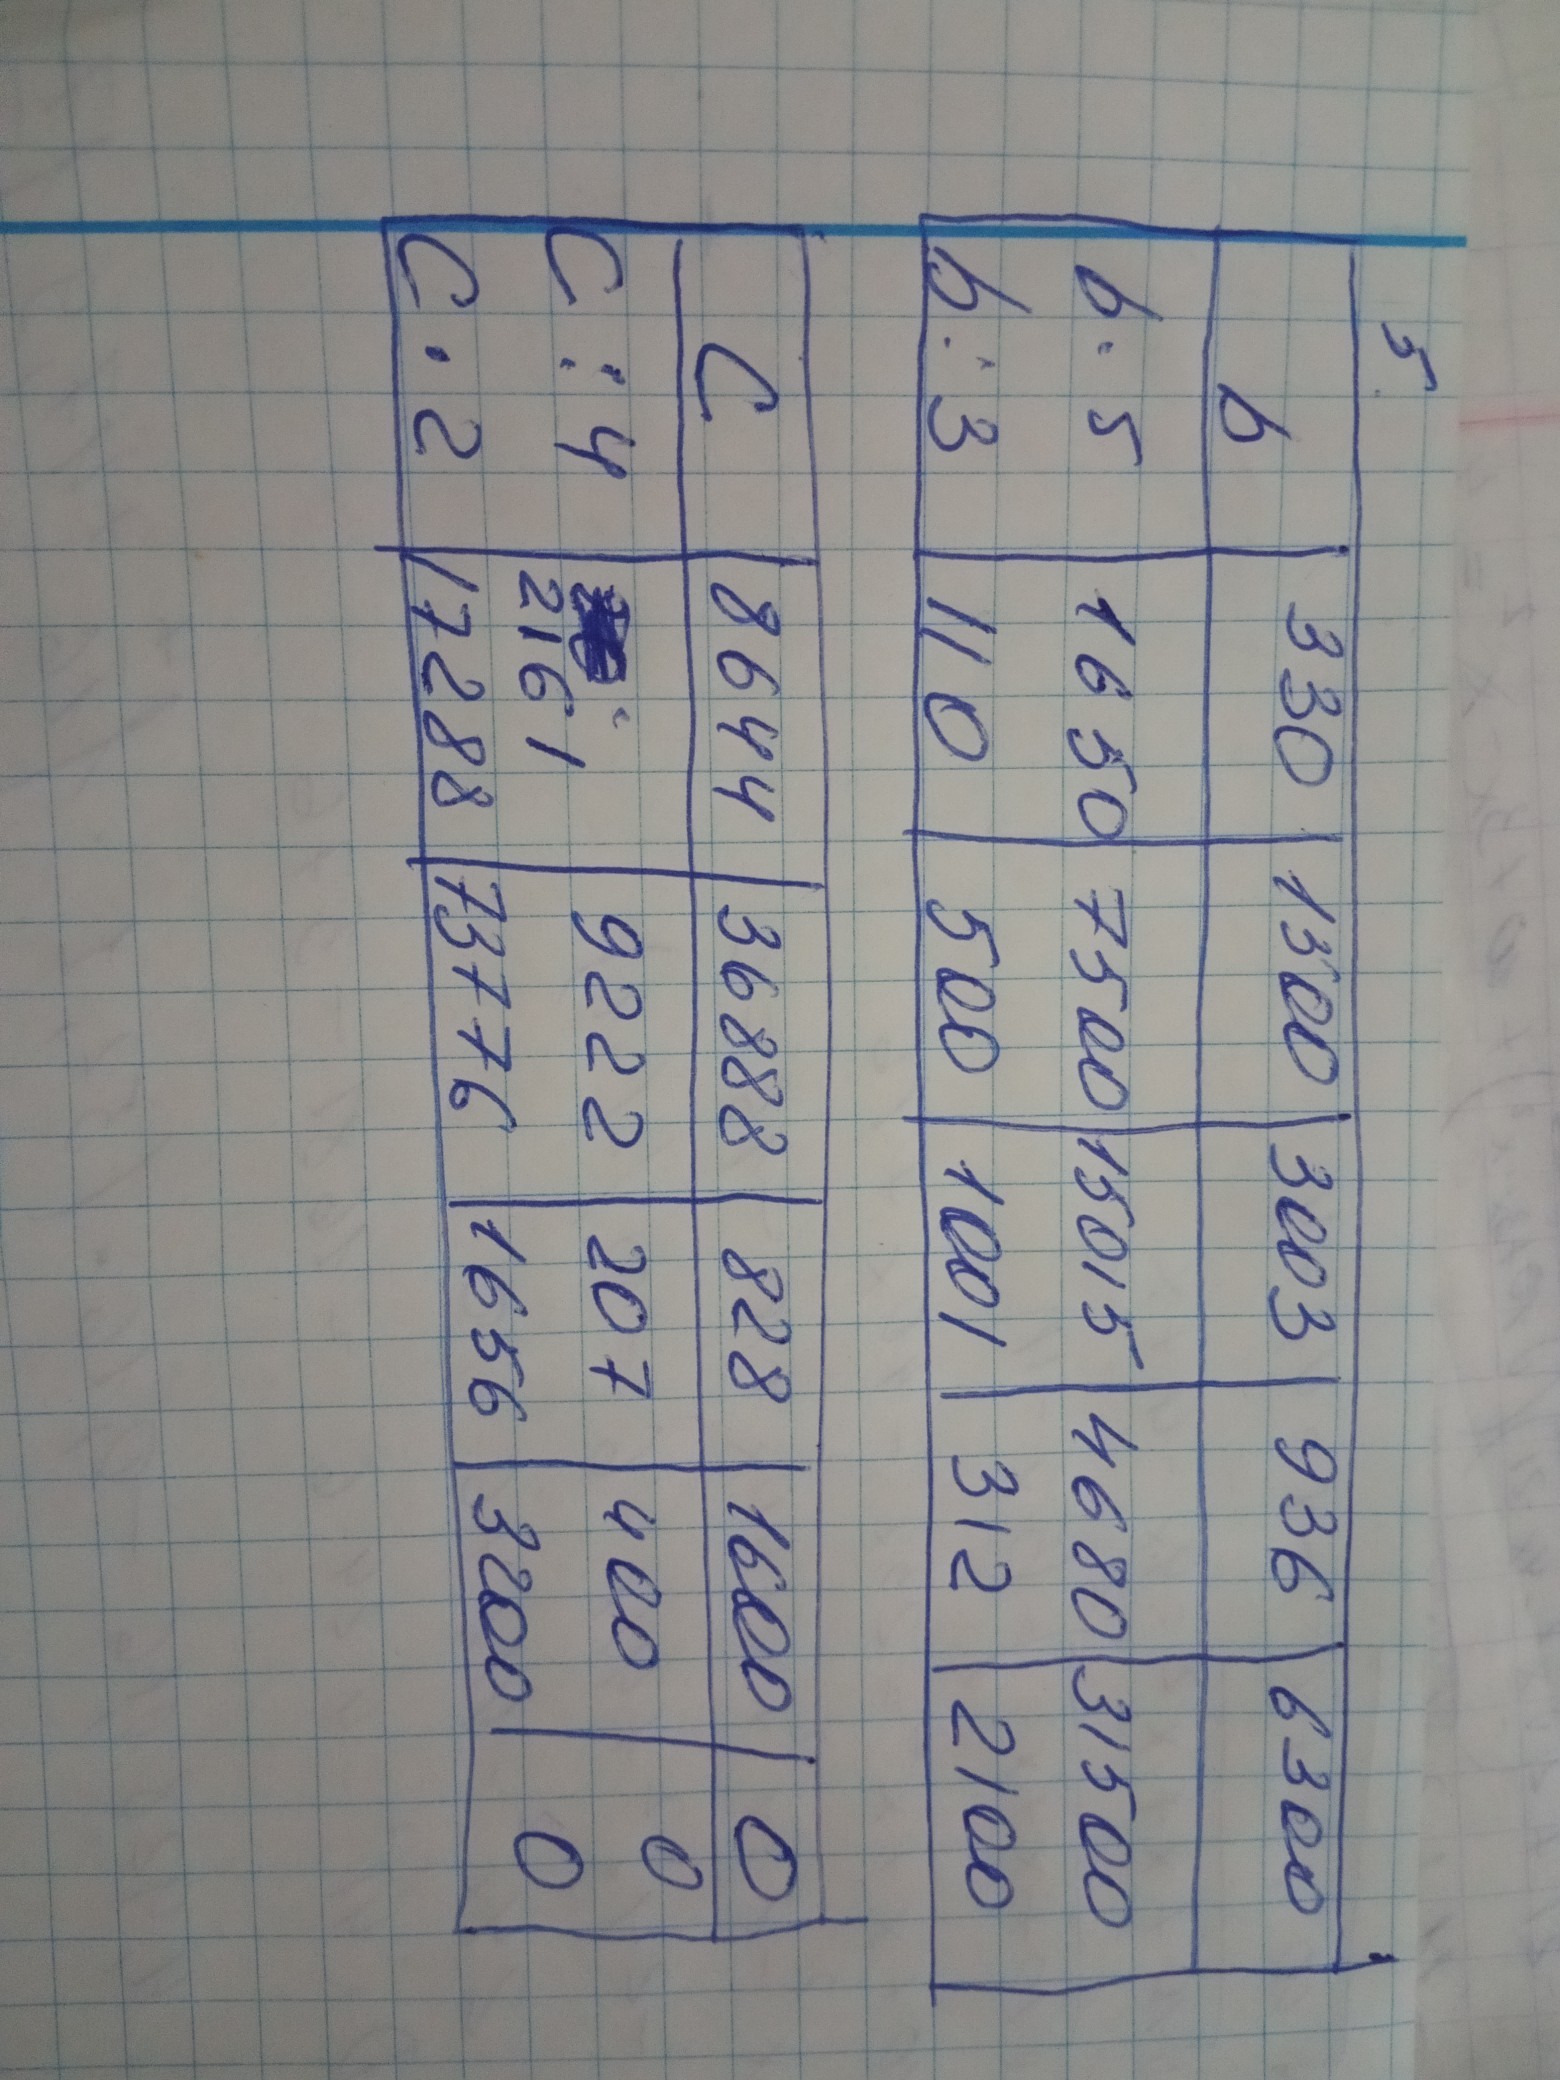 5.
b 330 1500 3003 936 6300
b · 5 1650 7500 15015 4680 31500
b : 3 110 500 1001 312 2100
C 8644 36888 828 1600 0
C : 4 2161 9222 207 400 0
C · 2 17288 73776 1656 3200 0